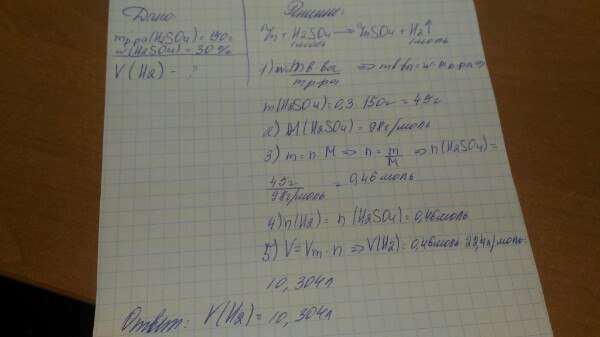 Дано:
mр-ра(H2SO4)=150г
w(H2SO4)=30%
V(H2) - ?
Решение:
Zn + H2SO4 → ZnSO4 + H2↑
1моль 1моль
1) w= m в-ва / mр-ра ⇒ mв-ва= w·mр-ра
m(H2SO4)=0,3·150г=45г
2) M(H2SO4)=98г/моль
3) m=n·M ⇒ n=m/M ⇒ n(H2SO4)=
45г / 98г/моль = 0,46моль
4) n(H2)= n(H2SO4)=0,46моль
5) V=Vm·n ⇒ V(H2)=0,46моль·22,4л/моль=
10,304л
Ответ: V(H2)=10,304л